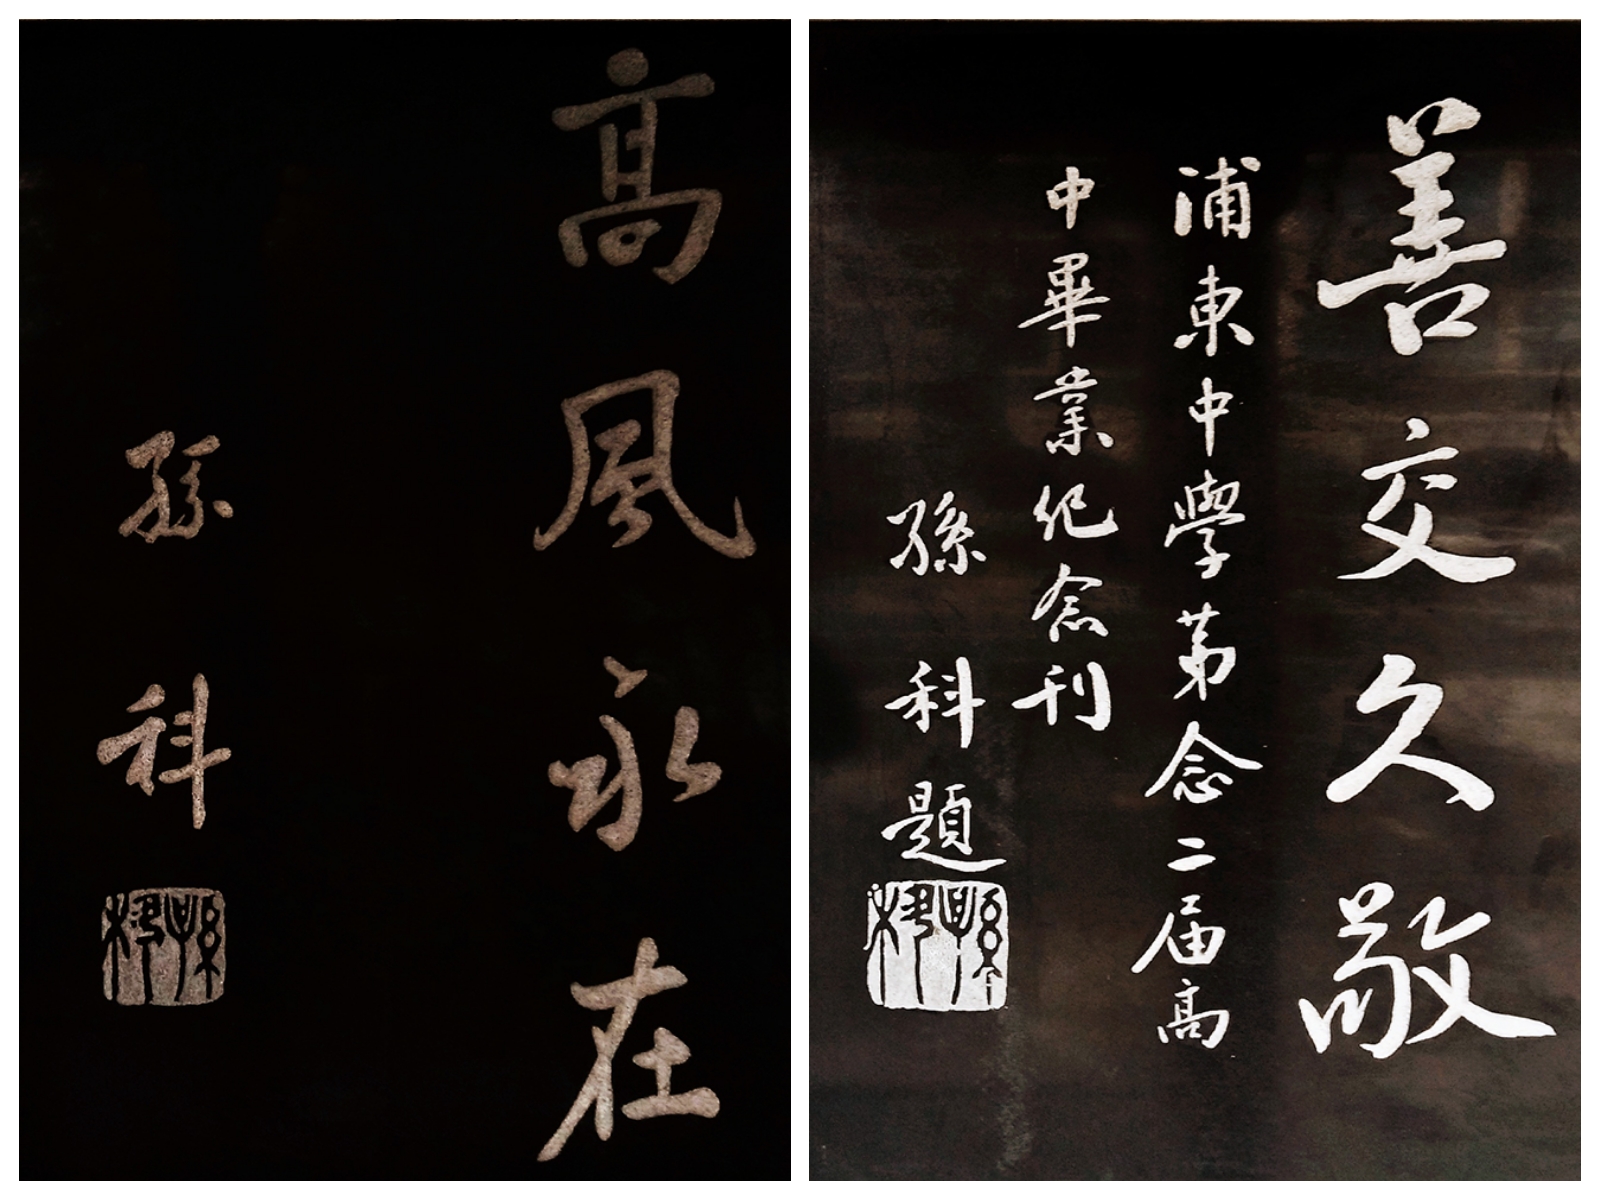 高風永在
孫科
孫科
善交久敬
浦東中學第念二届高
中畢業纪念刊
孫科題
孫科